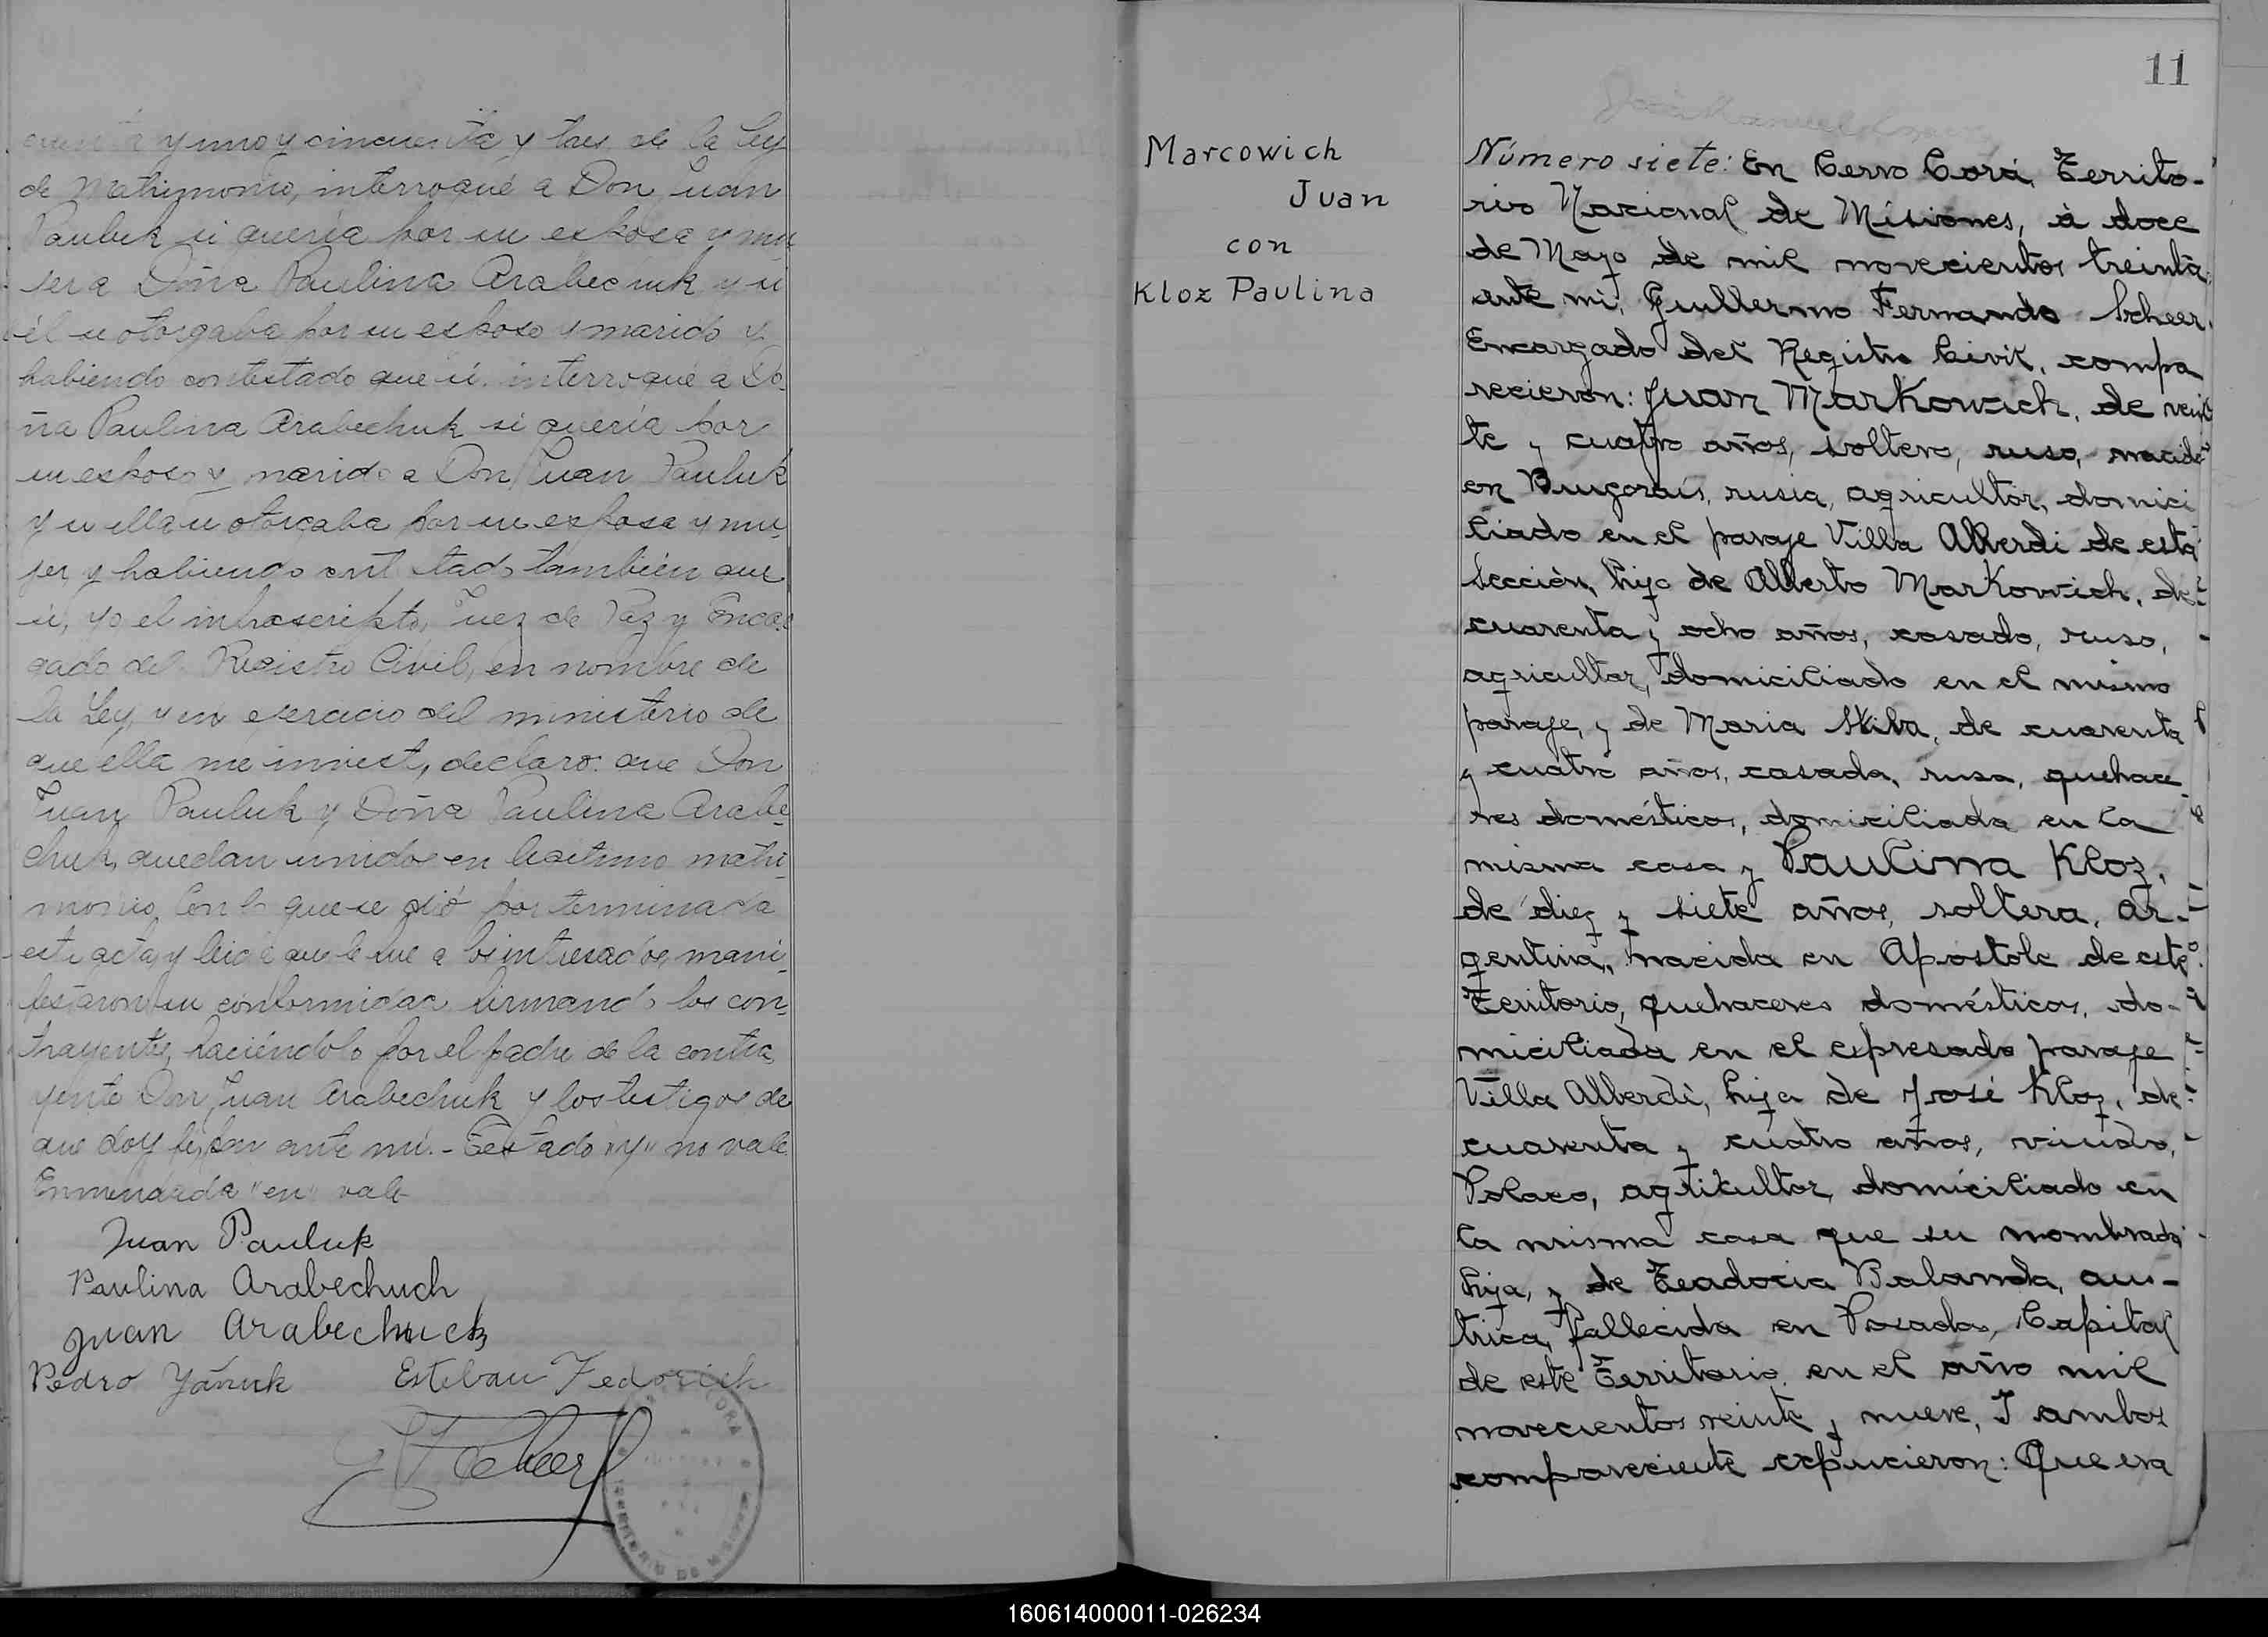 y uno y cincuenta y tres de la Ley
de Matrimonio, interrogué a Don Juan
Pauluk si quería por su esposa y mu
jer a Doña Paulina Arabechuk y si
él se otorgaba por su esposo y marido y
habiendo contestado que si. interrogué a Do-
ña Paulina Arabechuk si quería por
su esposo y marido a Don Juan Pauluk
y si ella se otorgaba por su esposa y mu-
jer, y habiendo contestado también que
si, yo el infrascripto, Juez de Paz y Encar
gado del Registro Civil, en nombre de
la Ley, y en ejercicio del ministerio de
que ella me invist, declaro: que Don
Juan Pauluk y Doña Paulina Arabe-
chuk, quedan unidos en legitimo matri-
monio, Con lo que se dió por terminada
este acta, y leida que le fue a los interesados, mani-
festaron su conformidad firmando los con-
trayentes, haciéndolo por el padre de la contra
yente Don Juan Arabechuk y los testigos de
que doy fe, por ante mi. - Testado "y" no vale
Enmendada "en" vale
Juan Pauluk
Paulina Arabechuch
Juan Arabechuck
Pedro Yánuk Esteban Fedorich
Scheer
CORA
TERRITORIO DE MISIONES
11
Marcowich
Juan
con
Kloz Paulina
Número siete: En Cerro Corá, Territo-
rio Nacional de Misiones, à doce
de Mayo de mil novecientos treinta,
ante mi, Guillermo Fernando Scheer,
Encargado del Registro Civil, compa
recieron: Juan Markowich, de vein
te y cuatro años, soltero, ruso, nacido
en rusia, agricultor, domici
liado en el paraje Villa Alberdi de esta
Sección, hijo de Alberto Markowich, de
cuarenta y ocho años, casado, ruso,
agricultor, domiciliado en el mismo
paraje, y de Maria Skiba, de cuarenta
y cuatro años, casada, rusa, quehace-
res domésticos, domiciliada en la
misma casa y Paulina Kloz,
de diez y siete años, soltera, ar-
gentina, nacida en Apostole de este
Territorio, quehaceres domésticos, do-
miciliada en el expresado paraje
Villa Alberdi, hija de José Kloz, de
cuarenta y cuatro años, viudo,
Polaco, agrikultor, domiciliado en
la misma casa que su nombrada
hija, y de Teadocia Balanda, aus-
trica, fallecida en Posadas, Capital
de este Territorio, en el año mil
novecientos veinte y nueve, I ambos
compareciente expucieron: Que era
160614000011-026234